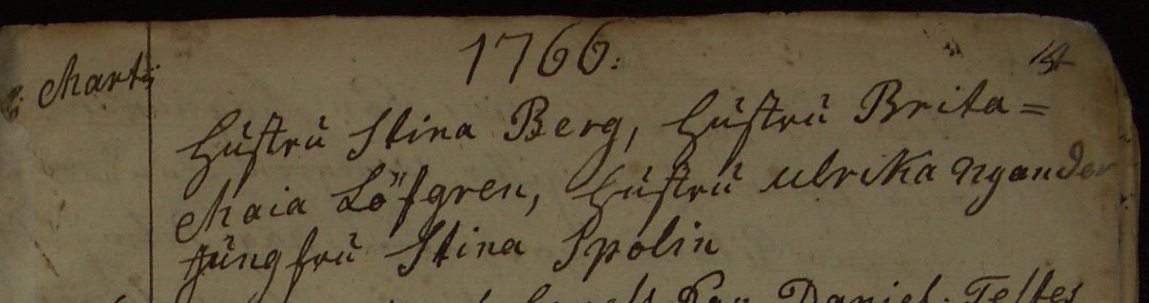 1766:
Martii
Hustru Stina Berg, Hustru Brita=
Maia Löfgren, Hustru Ulrika Nyander
Jungfru Stina Spolin
Daniel. Testes